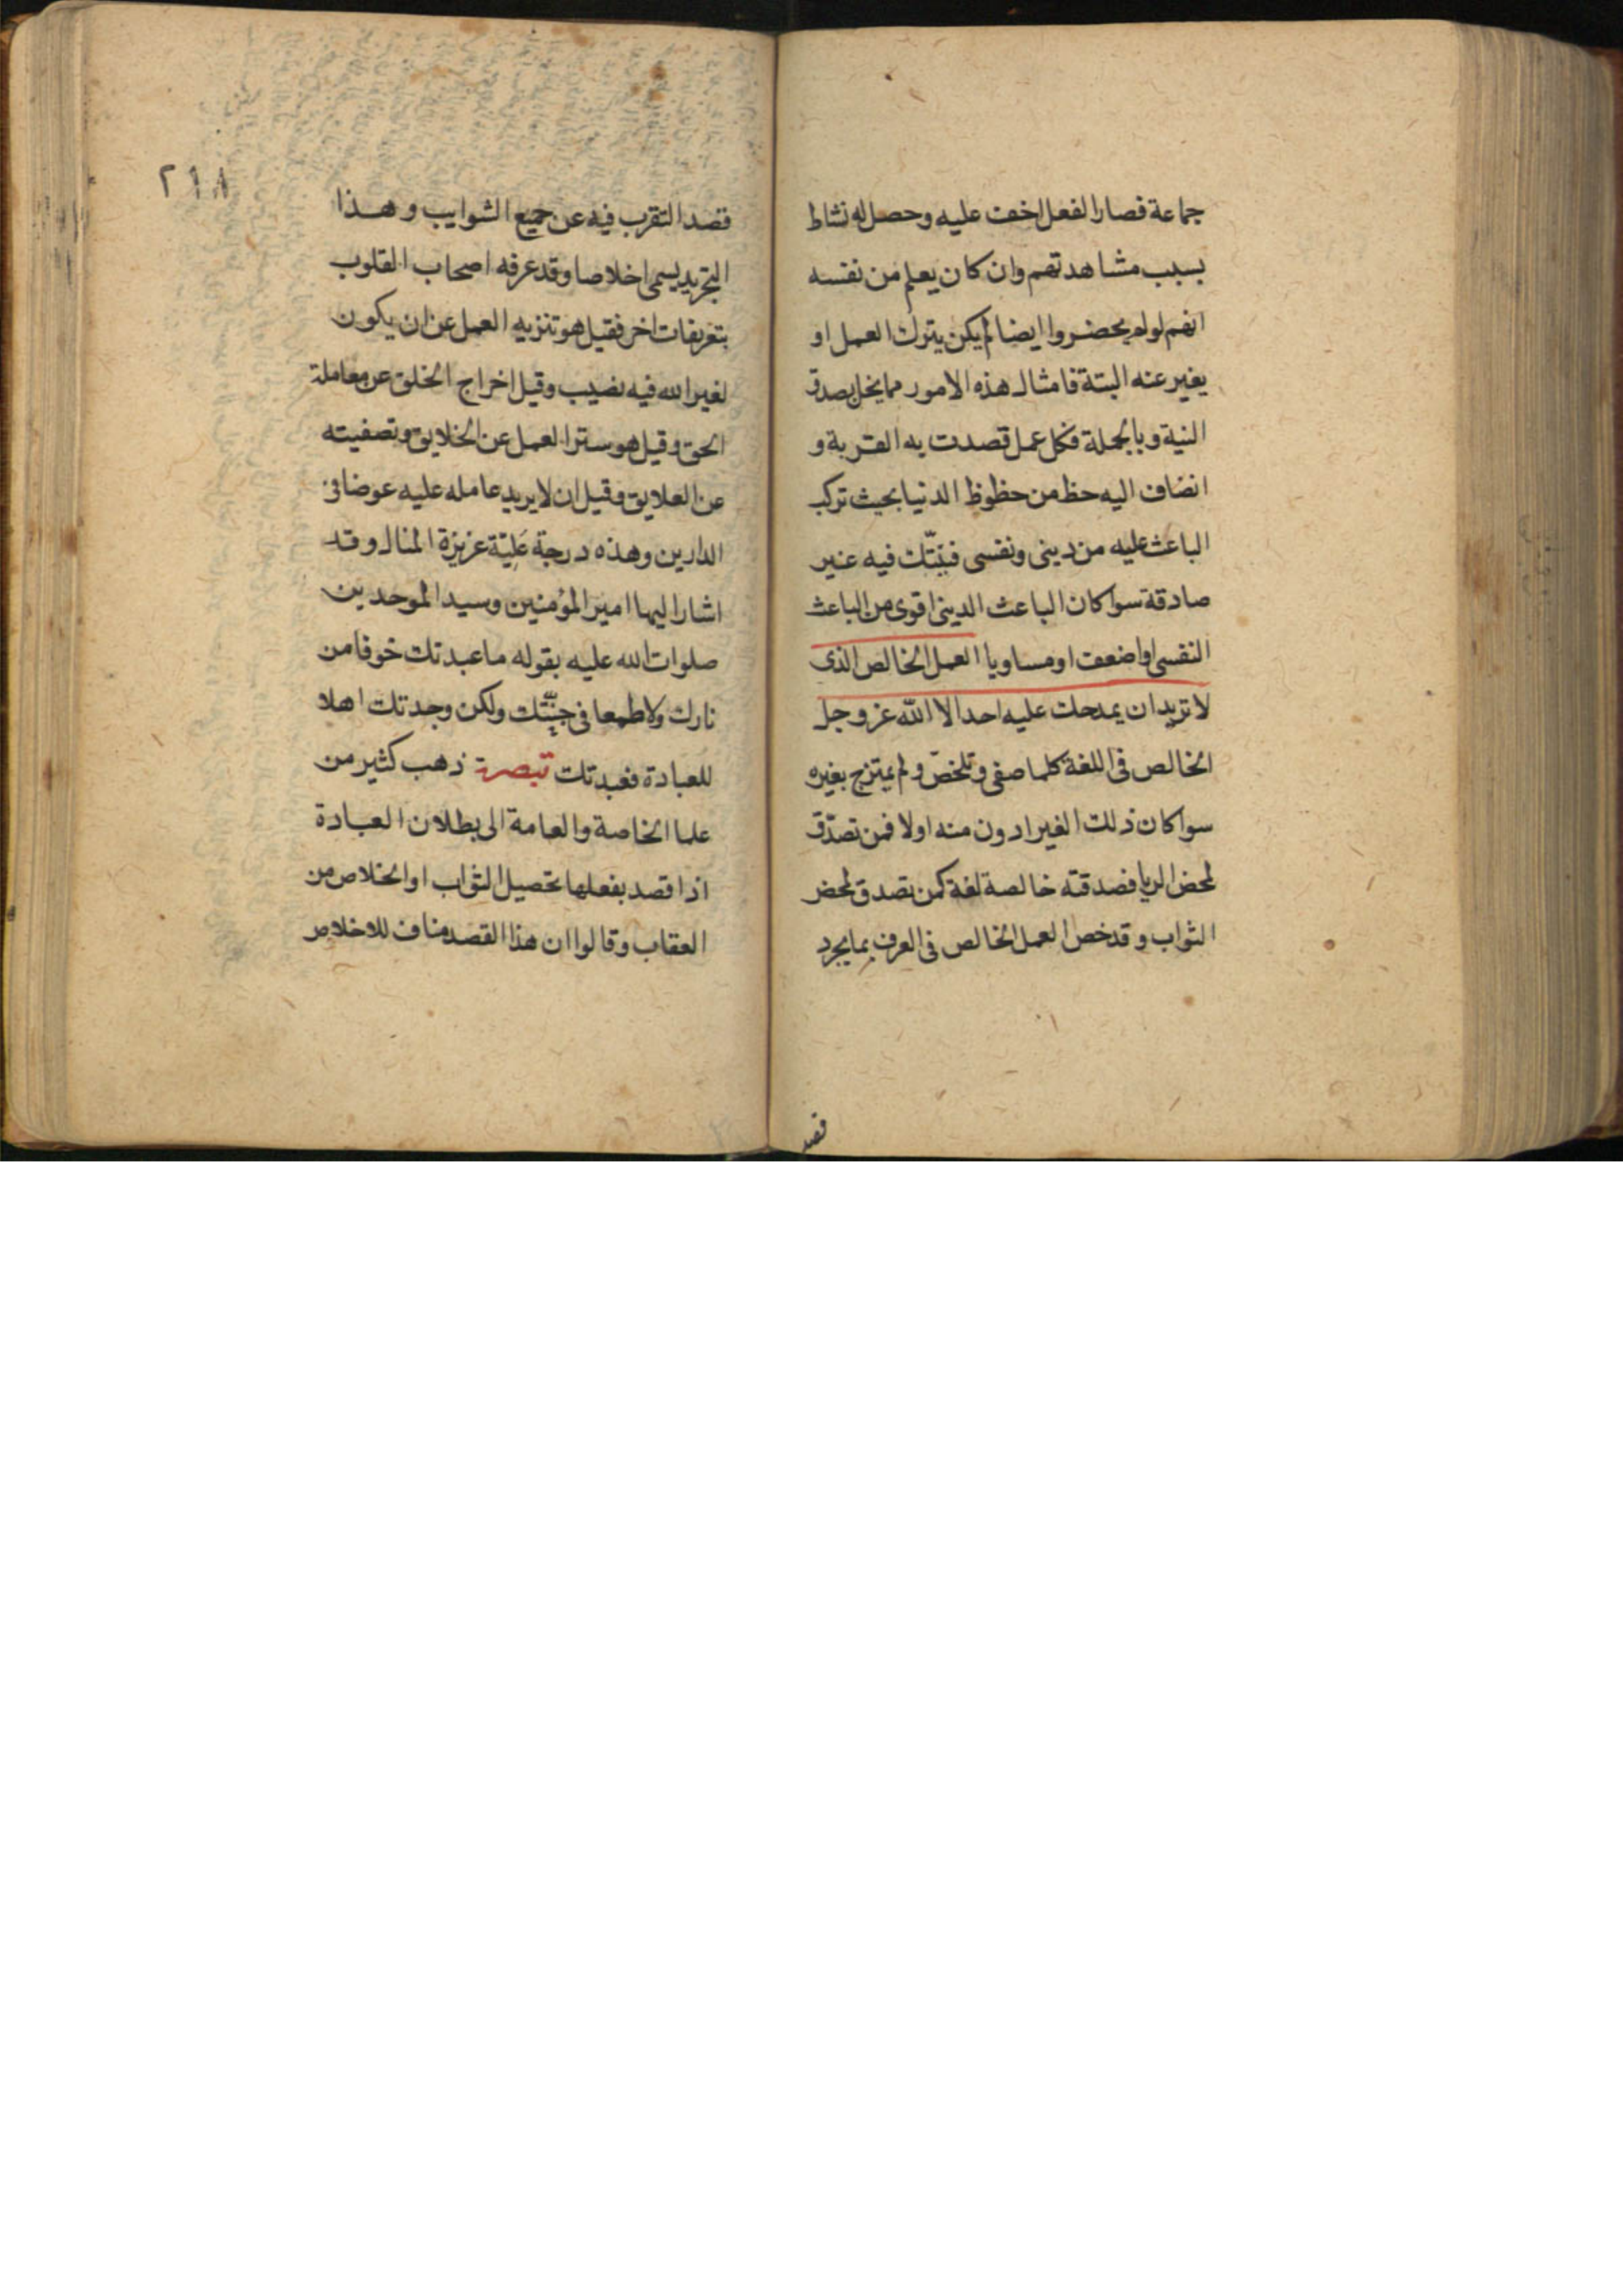 جماعة فصار الفعل اخف عليه وحصل له نشاط
بسبب مشاهدتهم وان كان يعلم من نفسه
انهم لو لم يحضروا ايضا لم يكن يترك العمل او
يغير عنه البتة فامثال هذه الامور مما يخل بصدق
النية وبالجملة فكل عمل قصدت به القربة و
انضاف اليه حظ من حظوظ الدنيا بحيث تركب
الباعث عليه من ديني ونفسي فنيّتك فيه غير
صادقة سوا كان الباعث الديني اقوى من الباعث
النفسي او اضعف او مساويا العمل الخالص الذى
لا تريد ان يمدحك عليه احد الا الله عز وجل
الخالص فى اللغة كلما صفى وتلخّص ولم يمتزج بغيره
سوا كان ذلك الغير ادون منه اولا فمن تصدّق
لمحض الريا فصدقته خالصة لغة كمن تصدق لمحض
الثواب وقد خص العمل الخالص فى العرف بما يجرد
قصد
٢١٨
قصد التقرب فيه عن جميع الشوايب وهذا
التجريد يسمى اخلاصا وقد عرفه اصحاب القلوب
بتعريفات اخر فقيل هو تنزيه العمل عن ان يكون
لغير الله فيه نصيب وقيل اخراج الخلق عن معاملة
الحق وقيل هو ستر العمل عن الخلايق وتصفيته
عن العلايق وقيل ان لا يريد عامله عليه عوضا فى
الدارين وهذه درجة عَلِيّة عزيزة المنال وقد
اشار اليها امير المؤمنين وسيد الموحدين
صلوات الله عليه بقوله ما عبدتك خوفا من
نارك ولا طمعا فى جنّتك ولكن وجدتك اهلا
للعبادة فعبدتك تبصرة ذهب كثير من
علما الخاصة والعامة الى بطلان العبادة
اذا قصد بفعلها تحصيل الثواب او الخلاص من
العقاب وقالوا ان هذا القصد مناف للاخلاص